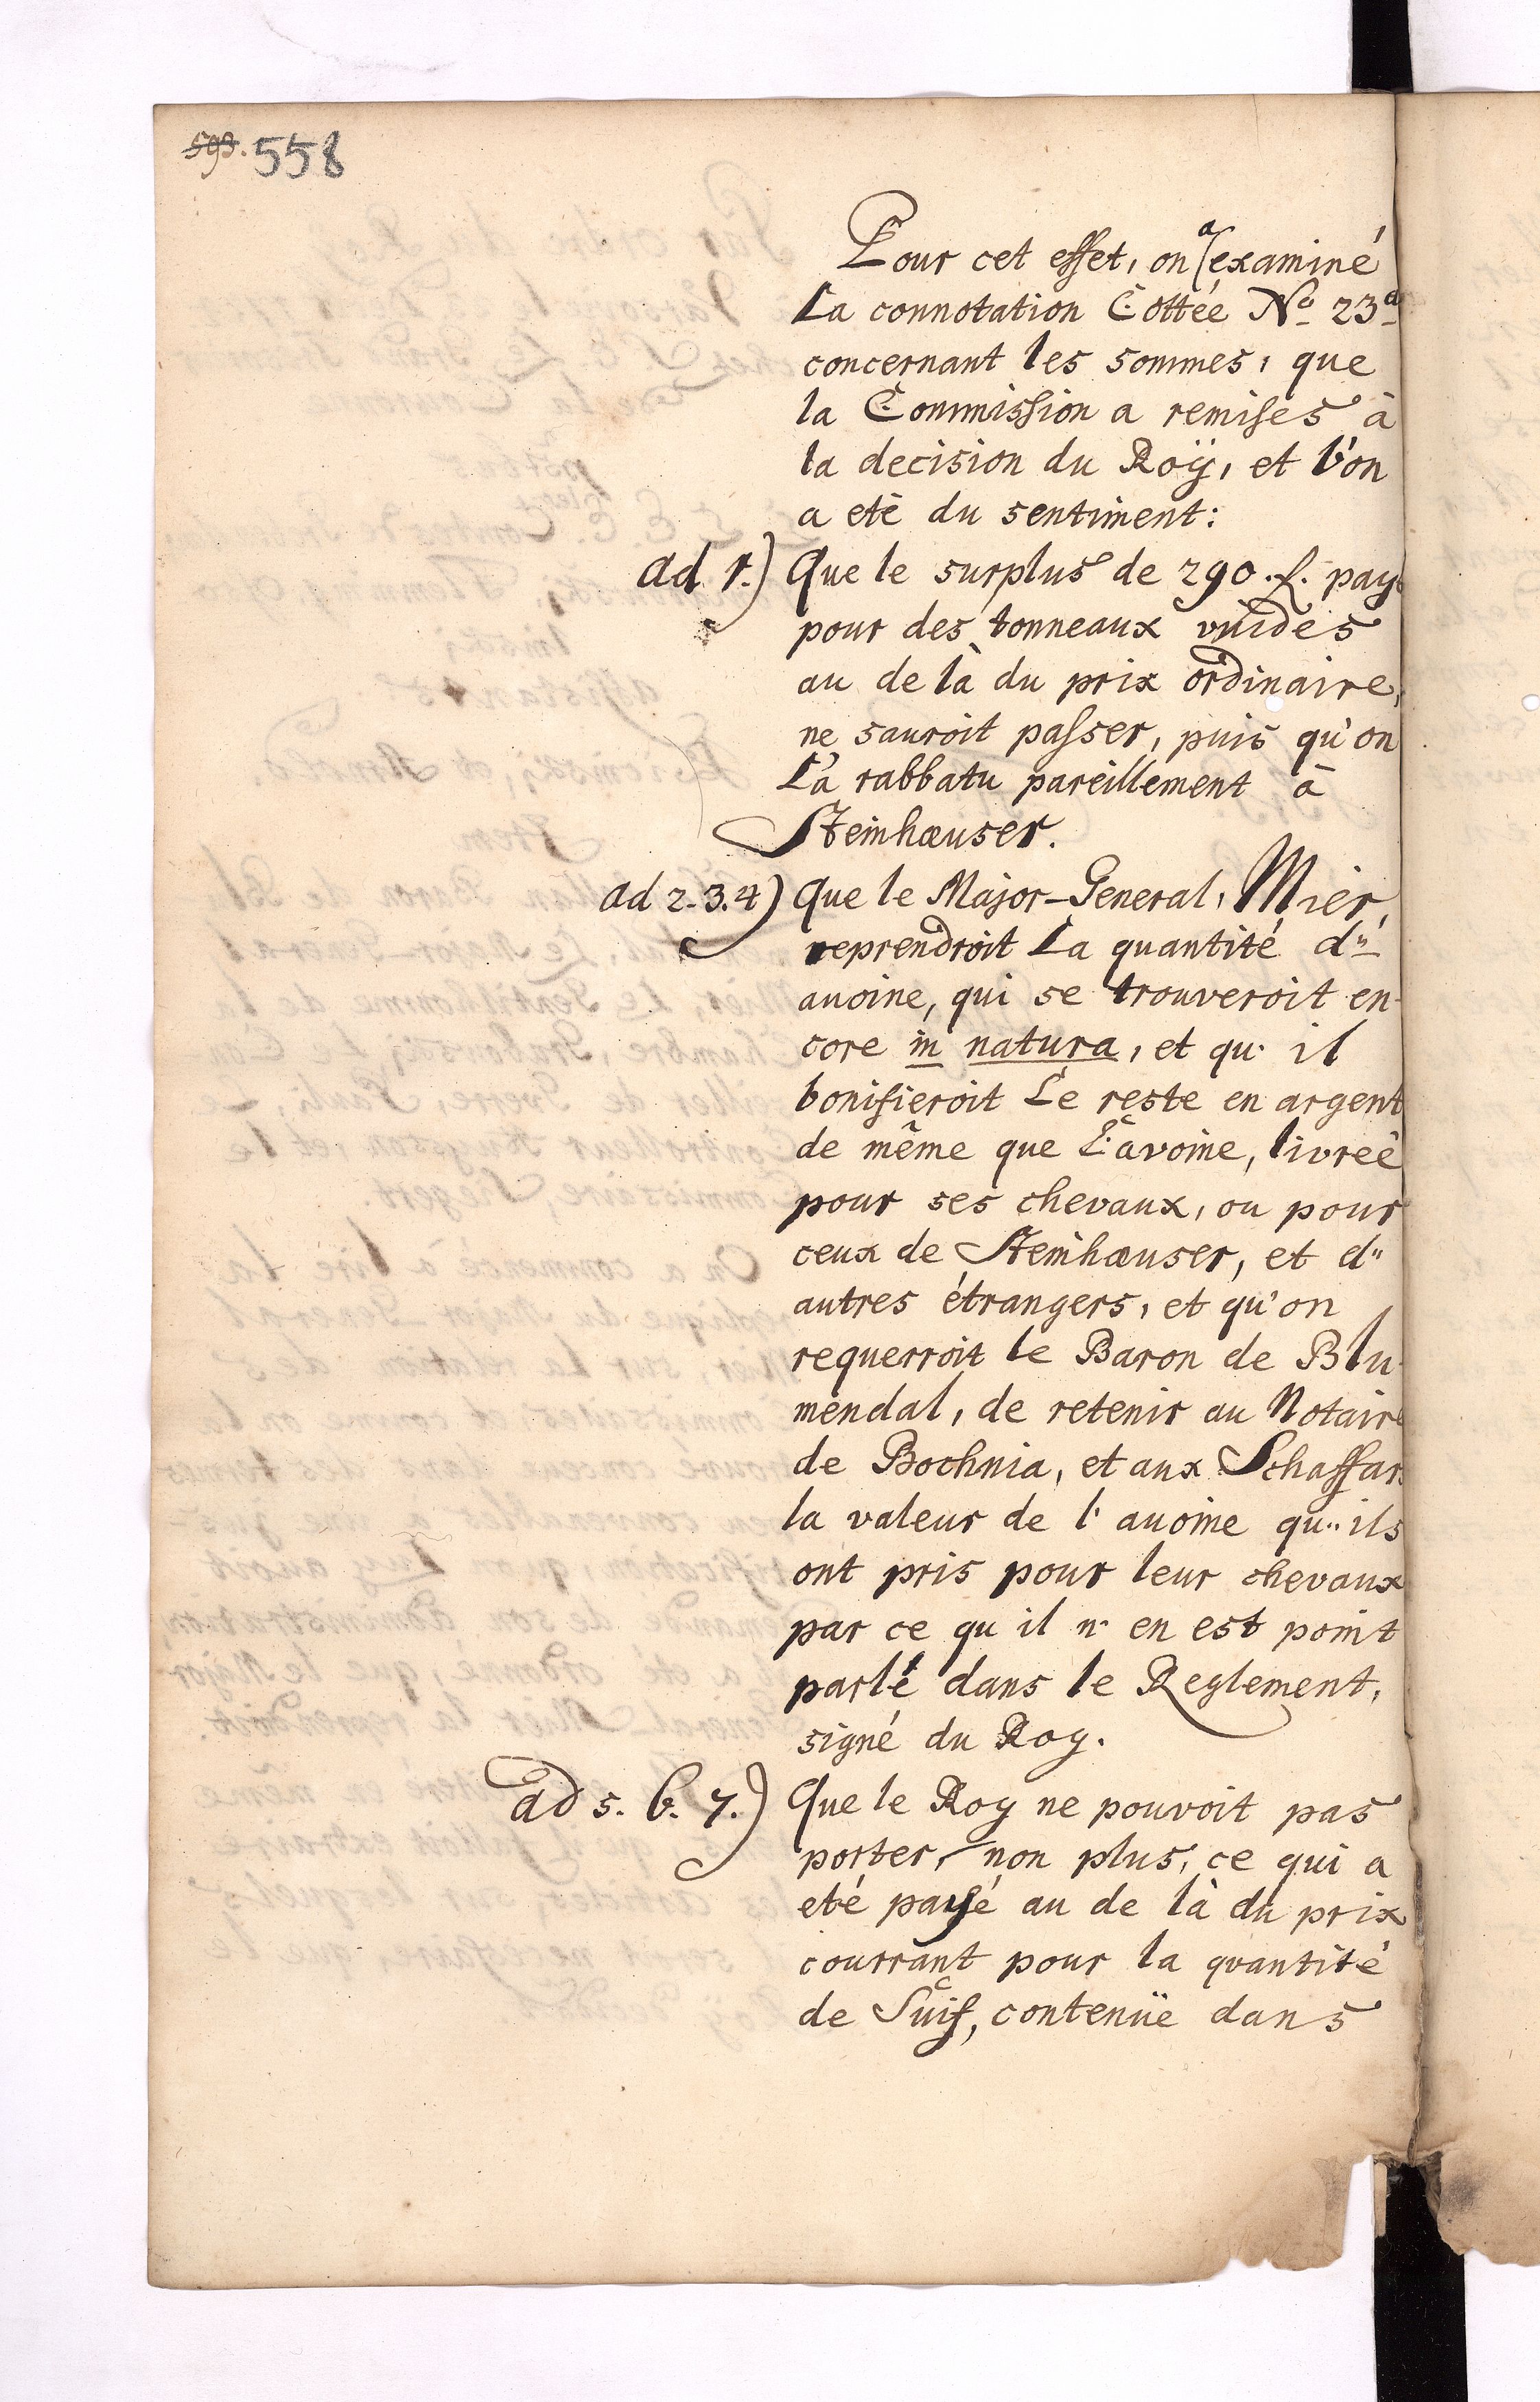 593. 558
Pour cet effet, on a examiné
La connotation Cottée No 23a
concernant les sommes, que
la Commission a remises à
la decision du Roÿ, et l'on
a eté du sentiment:
ad 1.) Que le surplus de 290. f. payé
pour des tonneaux vuides
au de là du prix ordinaire,
ne sauroit passer, puis qu'on
L'a rabbatu pareillement à
Steinhæuser.
ad 2. 3. 4) Que le Major-General, Mier,
reprendroit La quantité d''
avoine, qui se trouveroit en-
core in natura, et qu' il
bonifieroit Le reste en argent
de même que L'avoine, livreé
pour ses chevaux, ou pour
ceux de Steinhæuser, et d''
autres étrangers, et qu'on
requerroit le Baron de Blu-
mendal, de retenir au Notaire
de Bochnia, et aux Schaffars
la valeur de l' avoine qu'' ils
ont pris pour leur chevaux
par ce qu il n' en est point
parlé dans le Reglement,
signé du Roy.
ad 5. 6. 7.) Que le Roy ne pouvoit pas
porter, non plus, ce qui a
eté payé au de là du prix
courrant pour la quantité
de Suif, contenüe dans